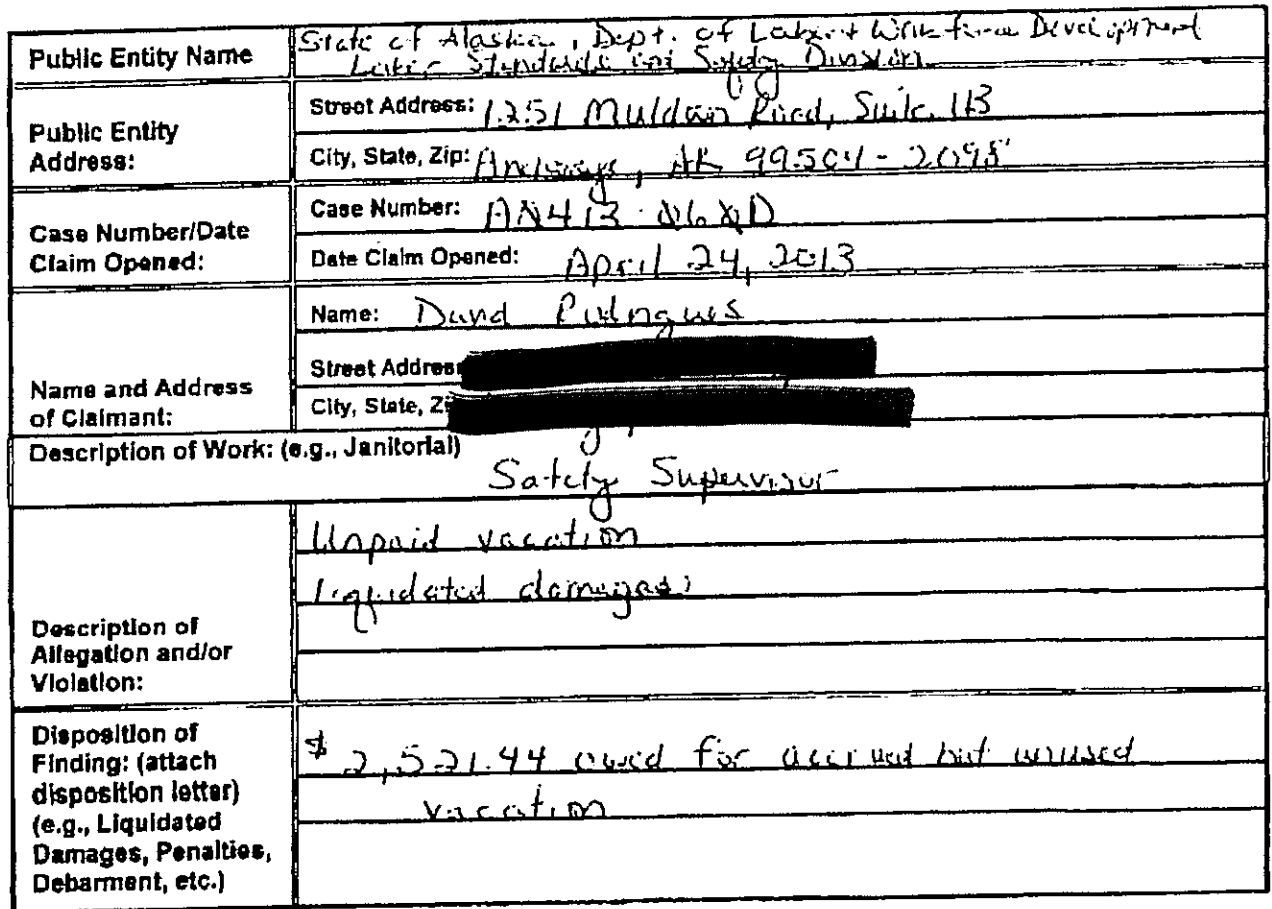 Public Entity Name
State of Alaska, Dept. of Labor & Workforce Development
Labor Standards and Safety Division
Public Entity Address:
Street Address: 1251 Muldoon Road, Suite 113
City, State, Zip: Anchorage, AK 99504-2098
Case Number/Date Claim Opened:
Case Number: AN413
Date Claim Opened: April 24, 2013
Name and Address of Claimant:
Name: David
Street Addres
City, State, Zi
Description of Work: (e.g., Janitorial)
Safety Supervisor
Description of Allegation and/or Violation:
Unpaid vacation
liquidated damages
Disposition of Finding: (attach disposition letter) (e.g., Liquidated Damages, Penalties, Debarment, etc.)
$2,521.44 owed for accrued but unused
vacation